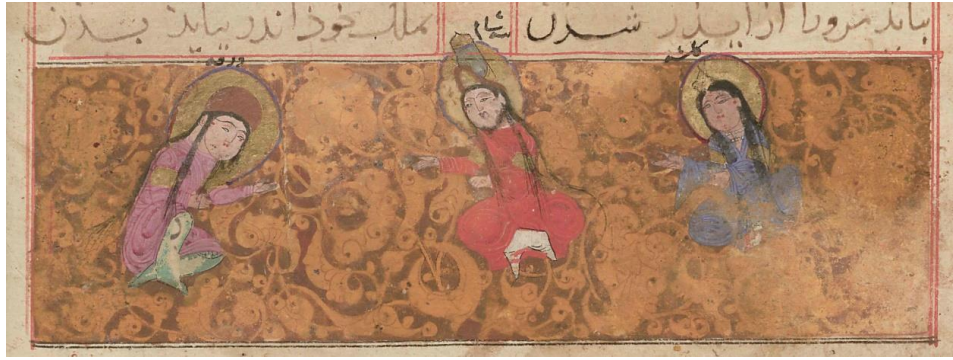 بباید مرورا از ایدر شدن بملک خوذ اندر بباید بدن
شاه شام
کلشه ورقه